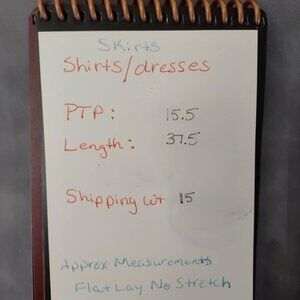 Skirts
Shirts/dresses
PTP: 15.5
Length: 37.5
Shipping wt 15
Approx Measurements
Flat Lay No Stretch